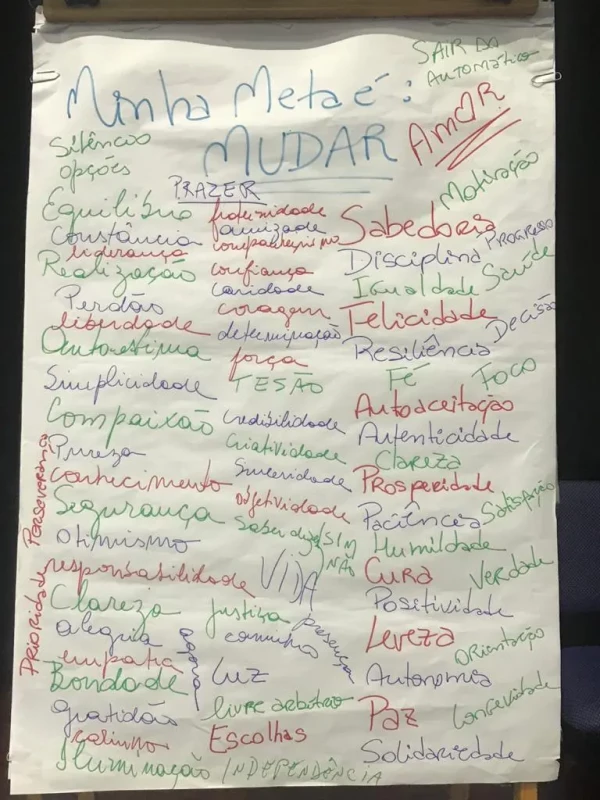 SAIR DO
AUTOMÁTICO
Minha Meta é:
MUDAR
AMOR
Silêncio
opções
Equilíbrio
Constância
liderança
Realização
Perdão
liberdade
Autoestima
Simplicidade
Compaixão
Pureza
conhecimento
Segurança
otimismo
responsabilidade
Clareza
alegria
empatia
Bondade
gratidão
carinho
Iluminação
Perseverança
Prioridade
PRAZER
fraternidade
amizade
companheirismo
confiança
caridade
coragem
determinação
força
TESÃO
credibilidade
Criatividade
Sinceridade
objetividade
Saber dizer SIM
NÃO
VIDA
justiça
caminho
presença
agora
LUZ
livre arbítrio
Escolhas
INDEPENDÊNCIA
Motivação
Sabedoria
Disciplina
PROGRESSO
Igualdade
Saúde
Felicidade
Decisão
Resiliência
Fé
FOCO
Autoaceitação
Autenticidade
Clareza
Prosperidade
Satisfação
Paciência
Humildade
Cura
Verdade
Positividade
Leveza
ORIENTAÇÃO
Autonomia
Paz
Longevidade
Solidariedade